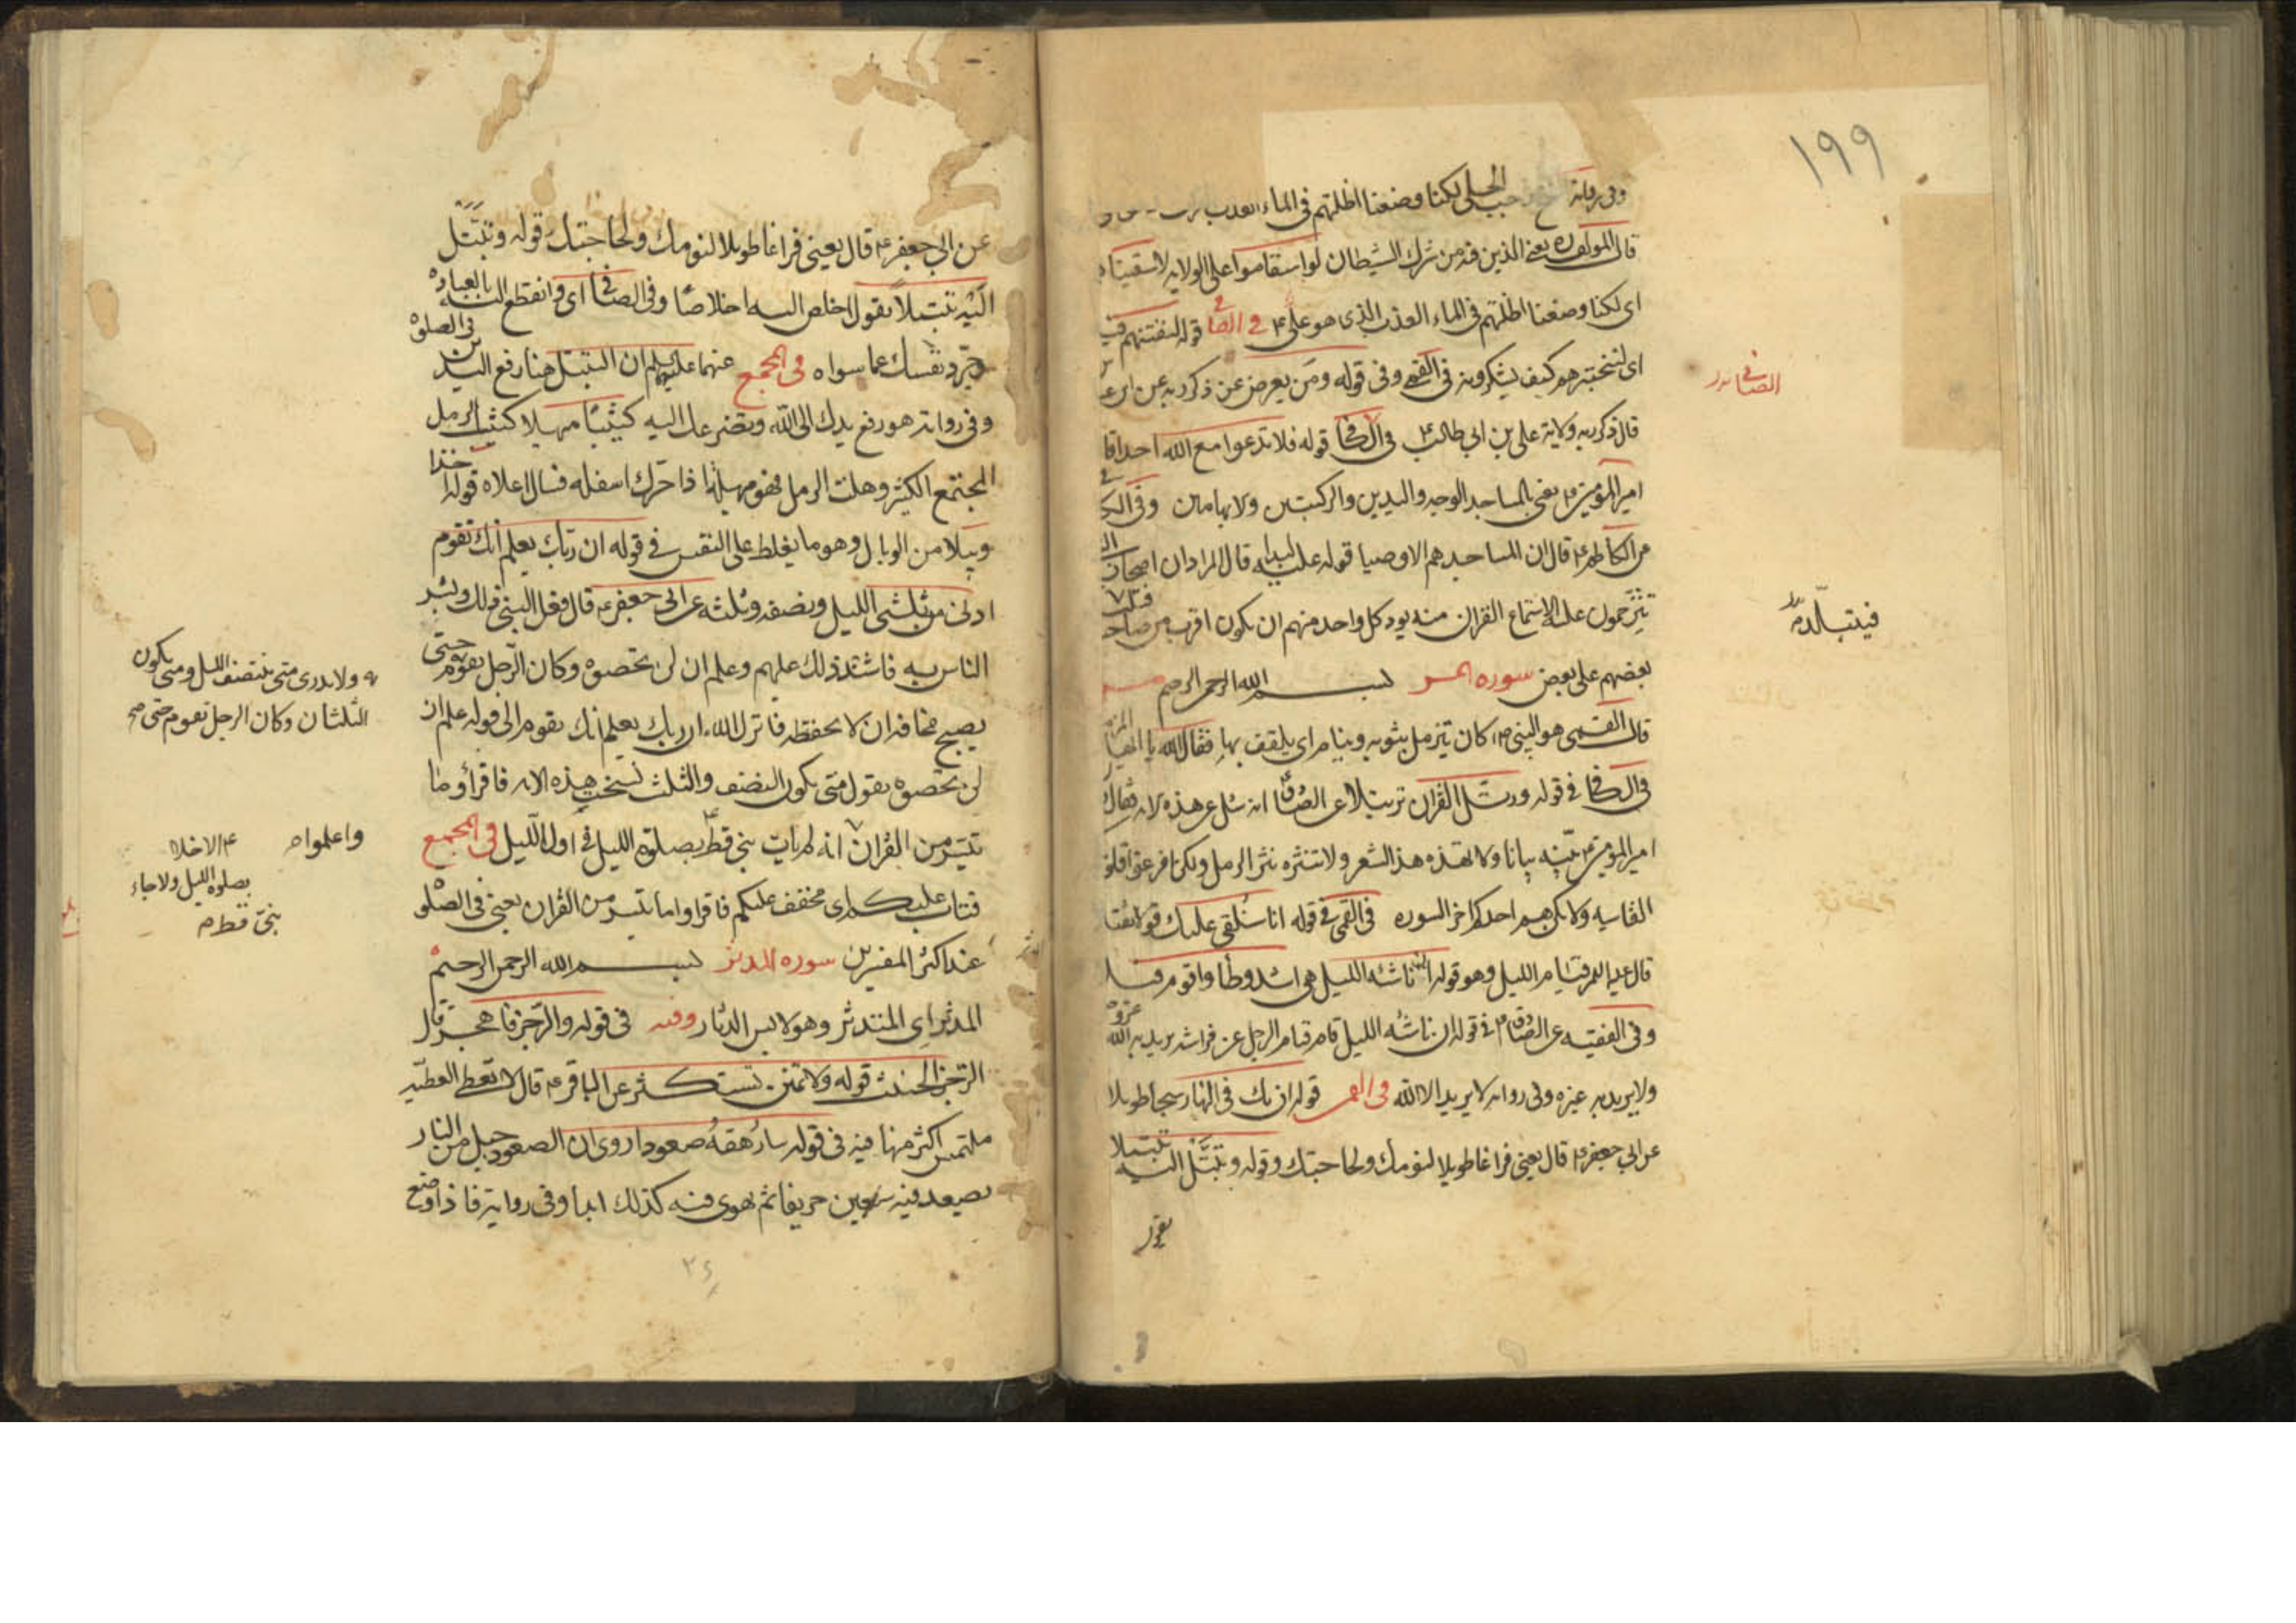 ١٩٩
وفى رواية الحلى لكنا وضعنا اظلتهم فى الماء العذب
قال المولف ره يعنى الذين فيه من شرك الشيطان لو استقاموا على الولاية لاسقيناه
اى لكنا وضعنا اظلتهم فى الماء العذب الذى هو على ع فى الصافى قوله لنفتنهم فيه
الصافى
اى لنختبرهم كيف يشكرونه فى القمى وفى قوله ومن يعرض عن ذكر ربه عن ابن
قال ذكر ربه ولاية على بن ابى طالب ع فى الكافى قوله فلا تدعوا مع الله احدا قا
امير المؤمنين ع يعنى بالمساجد الوجه واليدين والركبتين ولابهامان وفى الكا
عن الكاظم ع قال ان المساجد هم الاوصيا قوله عليه لبدا قال المراد ان اصحاب
تتزحمون عليه لاستماع القران منه يود كل واحد منهم ان يكون اقرب من صاحبه
فيتبلد
بعضهم على بعض سوره المزمل بسم الله الرحمن الرحيم
قال القمى هو النبى ص كان يتزمل بثوبه وينام اى يلفف بها فقال الله يا ايها المزمل
فى الكافى فى قوله ورتل القران ترتيلا عن الصادق انه سئل عن هذه الاية فقال
امير المؤمنين ع بينه بيانا ولا تهذه هذ الشعر ولا تنثره نثر الرمل ولكن افرعوا قلو
القاسيه ولا يكن هم احدكم اخر السوره فى القمى فى قوله انا سنلقى عليك قولا ثقيلا
قال عليه السلم قيام الليل وهو قوله ان ناشئه الليل هى اشد وطأ واقوم قيلا
وفى الفقيه عن الصادق ع فى قوله ان ناشئه الليل قام قيام الرجل عن فراشه يريد به الله عز وجل
ولا يريد به غيره وفى رواية لا يريد الا الله فى القمى قوله ان لك فى النهار سبحا طويلا
عن ابى جعفر ع قال يعنى فراغا طويلا لنومك ولحاجتك وقوله وتبتل اليه تبتيلا
يقول
عن ابى جعفر ع قال يعنى فراغا طويلا لنومك ولحاجتك قوله وتبتل
اليه تبتيلا يقول اخلص اليه اخلاصا وفى الصافى اى وانقطع اليه بالعباده
وجرد نفسك عما سواه فى المجمع عنهما عليهما السلم ان التبتل هنا رفع اليدين فى الصلوة
وفى رواية هو رفع يدك الى الله وتضرعك اليه كثيبا مهيلا كثيب الرمل
المجتمع الكثير وهلت الرمل فهو مهيل اذا حرك اسفله فسال اعلاه قوله اخذا
وبيلا من الوبال وهو ما يغلظ على النفس فى قوله ان ربك يعلم انك تقوم
ادنى من ثلثى الليل ونصفه وثلثه عن ابى جعفر ع قال فعل النبى ذلك وبشر
الناس به فاشتد ذلك عليهم وعلم ان لن تحصوه وكان الرجل يقوم حتى
يصبح مخافة ان لا يحفظه فانزل الله ان ربك يعلم انك تقوم الى قوله علم ان
لن تحصوه يقول متى يكون النصف والثلث نسخت هذه الاية فاقرأوا ما
تيسر من القران انه لم يات نبى قط بصلوة الليل فى اول الليل فى المجمع
فتاب عليكم اى مخفف عليكم فاقروا ما تيسر من القران يعنى فى الصلو
عند اكثر المفسرين سوره المدثر بسم الله الرحمن الرحيم
المدثر اى المتدثر وهو لابس الدثار وفيه فى قوله والرجز فاهجر قال
الرجز الخبيث قوله ولا تمنن تستكثر عن الباقر ع قال لا تعط العطيه
ملتمس اكثر منها فيه فى قوله سارهقه صعودا روى ان الصعود جبل من النار
يصعد فيه سبعين خريفا ثم يهوى فيه كذلك ابدا وفى رواية فاذا وضع
ولا يدرى متى ينتصف الليل ومتى يكون
الثلثان وكان الرجل يقوم حتى صح
واعلموا
بصلوة الليل ولا جاء
نبى قط